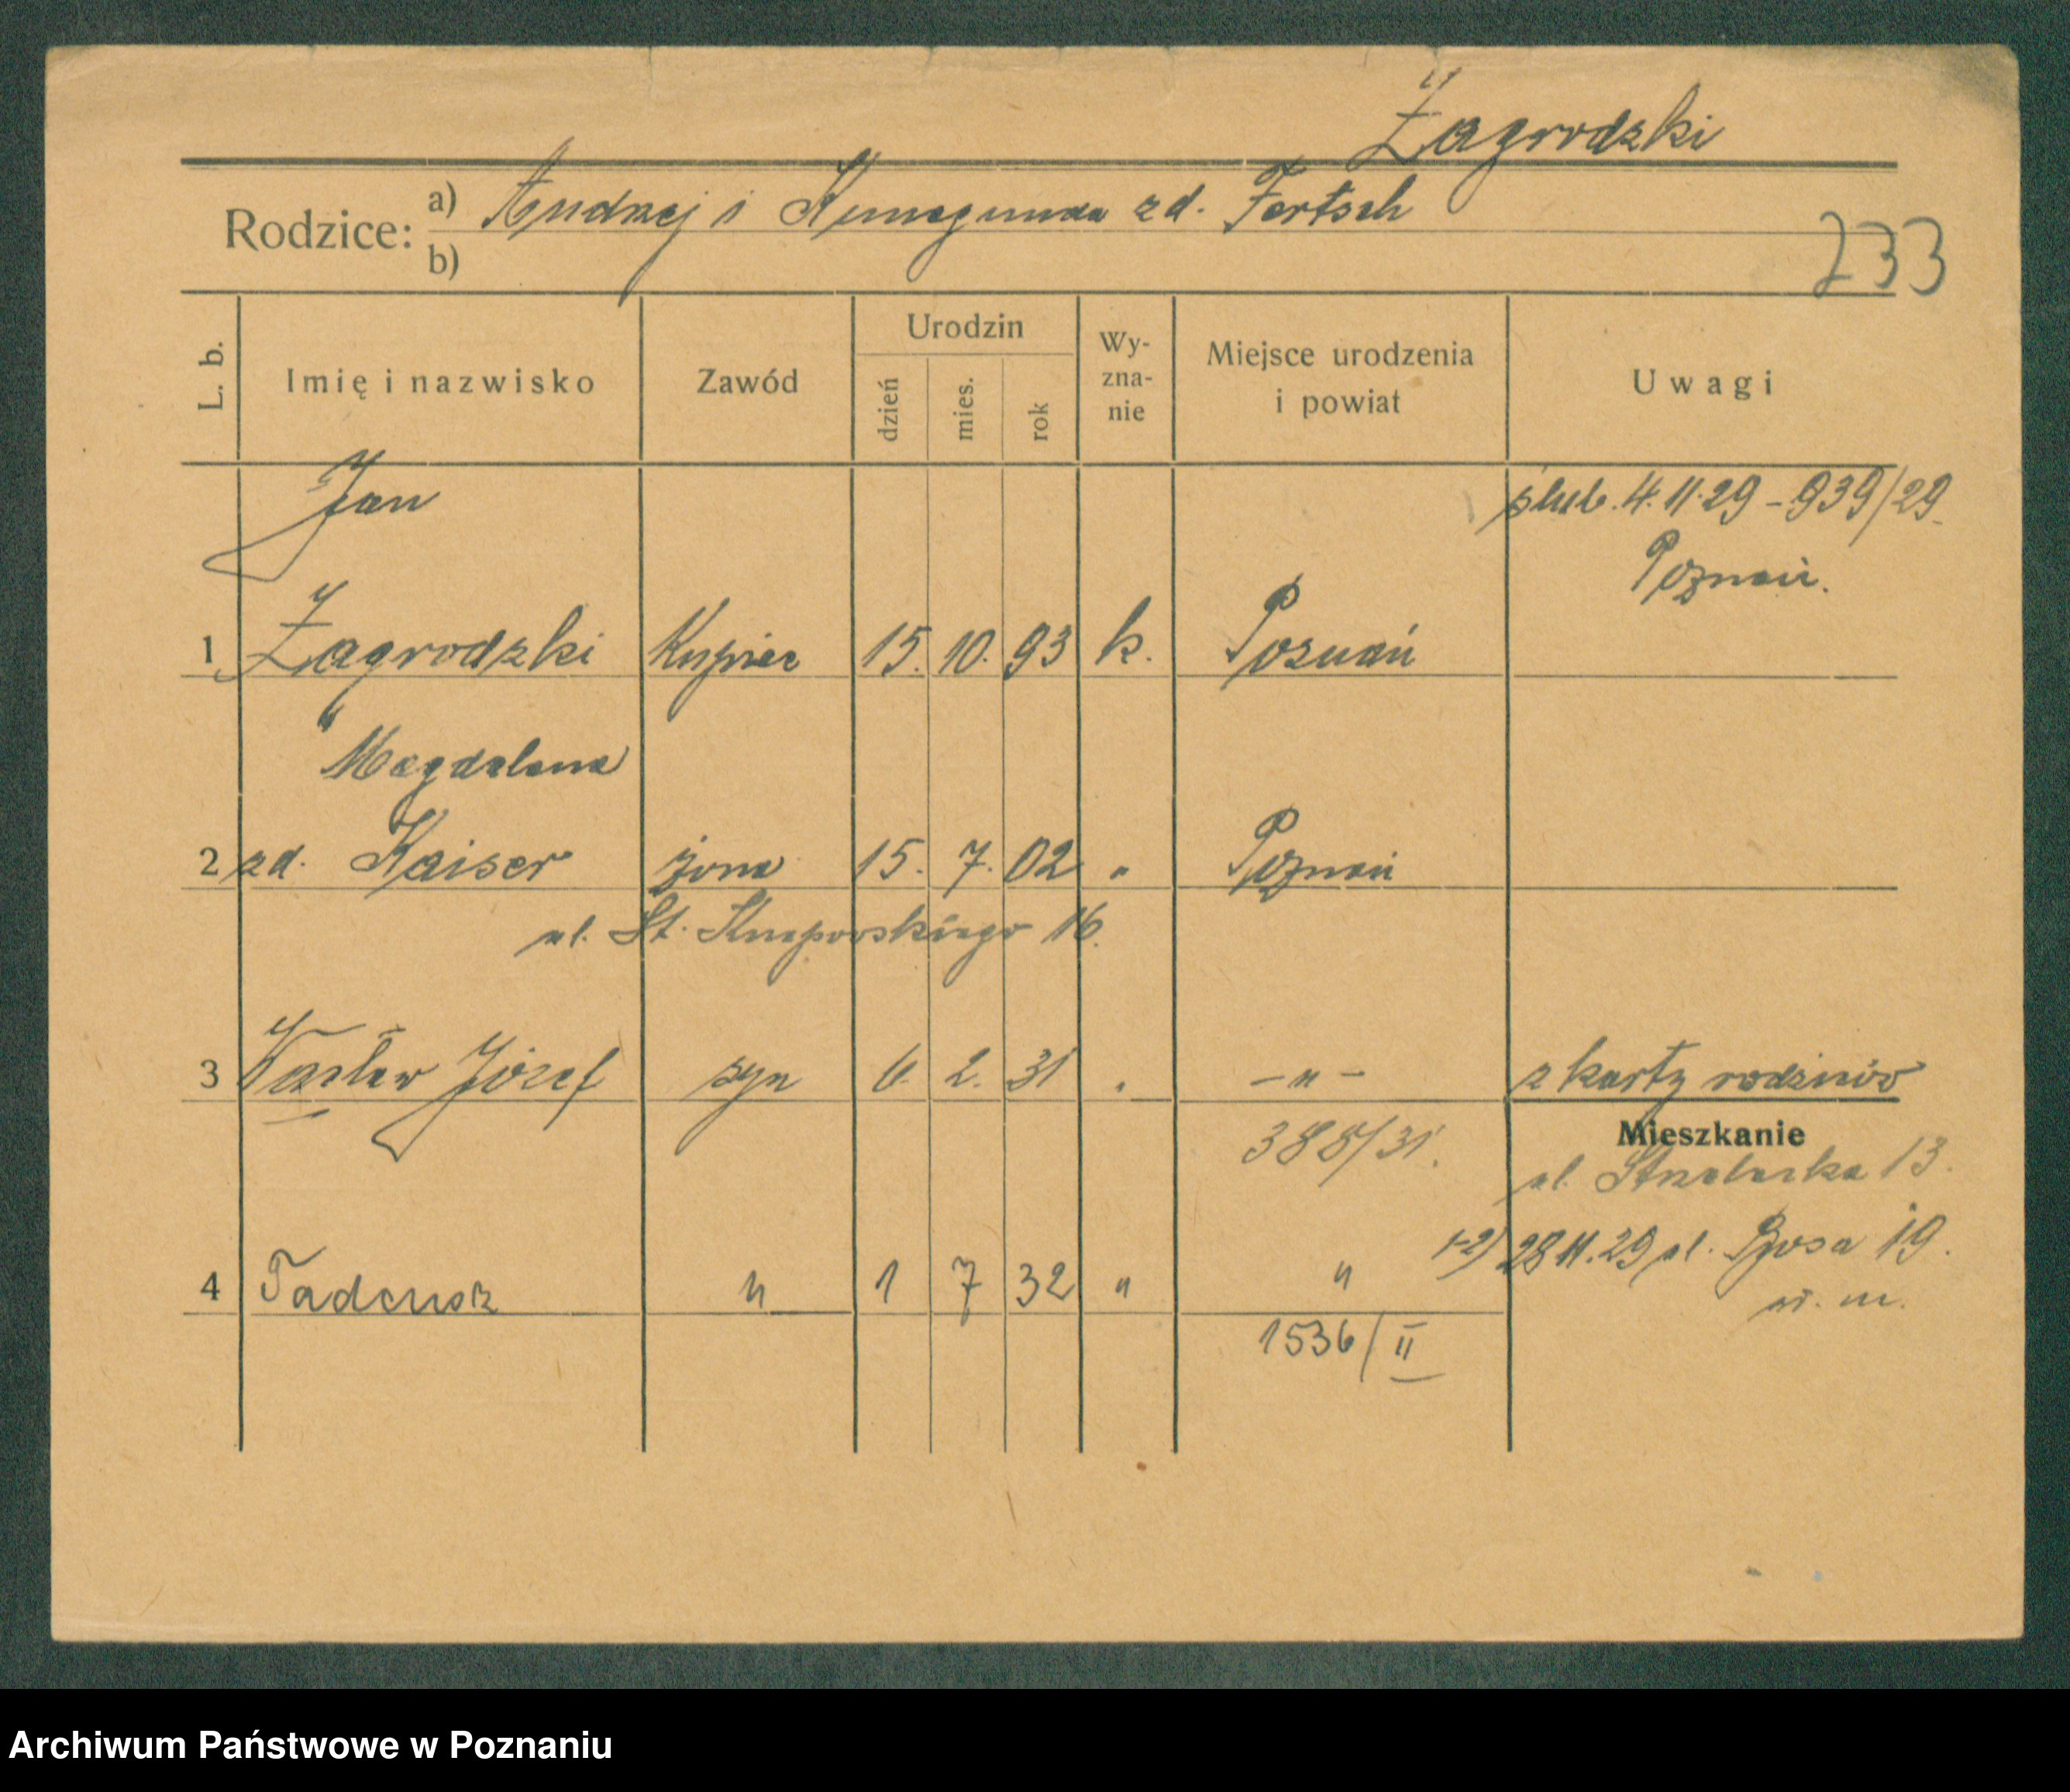 Zagrodzki
Rodzice: a) Andrzej i Kunegunda zd. Fertsch
b)
233
L. b. Imię i nazwisko Zawód Urodzin dzień mies. rok Wy-zna-nie Miejsce urodzenia i powiat Uwagi
Jan ślub. 4.11.29 – 939/29
Poznań.
1 Zagrodzki Kupiec 15. 10. 93 k. Poznań
" Magdalena
2 zd. Kaiser żona 15. 7. 02 " Poznań
ul. St. Knapowskiego 16.
3 Wacław Józef syn 6. 2. 31 " – " – z karty rodziców
388/31. Mieszkanie
ul. Strzelecka 13.
1-2) 28 11.29 ul. 19.
4 Tadeusz " 1 7 32 " "
w. m.
1536/II
Archiwum Państwowe w Poznaniu